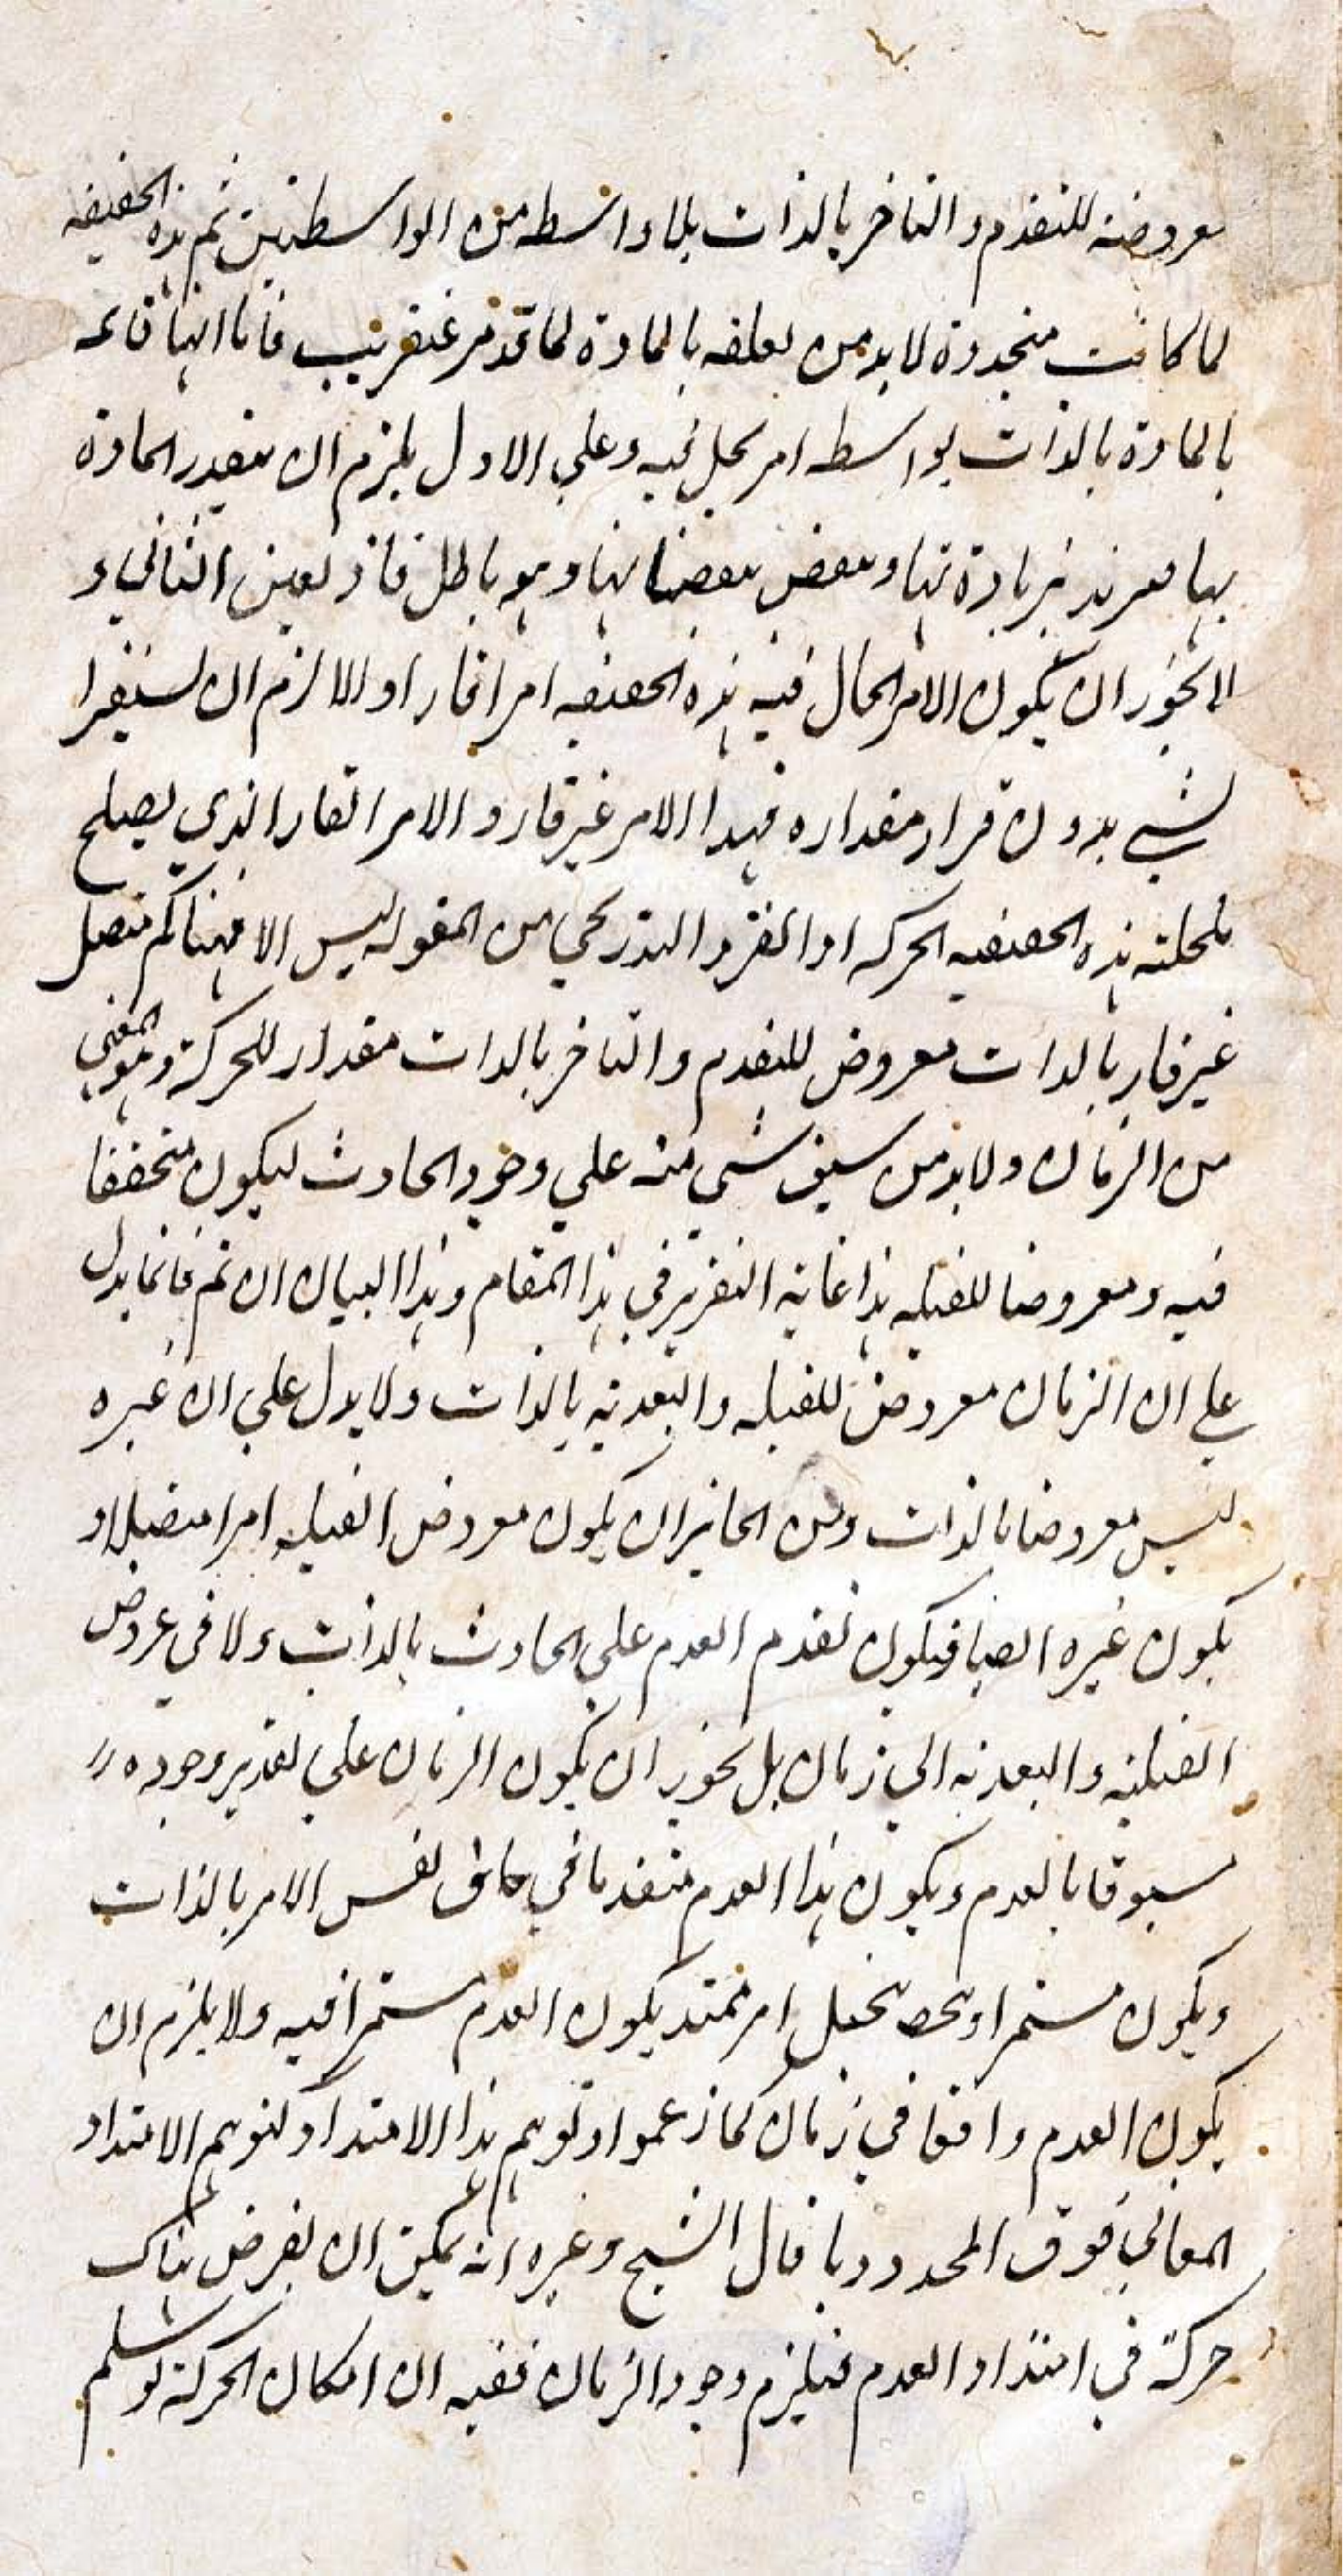 معروضة للتقدم والتاخر بالذات بلا واسطة من الواسطتين ثم هذه الحقيقة
لما كانت متجددة لا بد من تعلقه بالمادة لما تقدم عنقريب فاما انها قائمة
بالمادة بالذات بواسطة امر يحل فيه وعلى الاول يلزم ان يتقدر المادة
بها فيزيد بزيادتها وينقص بنقصانها وهو باطل فاذن تعين الثاني و
لا يجوز ان يكون الامر الحال فيه هذه الحقيقة امرا قارا والا لزم ان يستقر
الشيء بدون قرار مقداره فهذا الامر غير قار والامر الغار الذي يصلح
لمحلية هذه الحقيقة الحركة او التفرد التدريجي من المقولة ليس الا فهنا كم متصل
غير قار بالذات معروض للتقدم والتاخر بالذات مقدار للحركة وهو المعني
من الزمان ولا بد من سبق شيء منه على وجود الحادث ليكون متحققا
فيه ومعروضا للقبلية هذا غاية التقرير في هذا المقام وهذا البيان ان تم فانما يدل
على ان الزمان معروض للقبلية والبعدية بالذات ولا يدل على ان غيره
ليس معروضا بالذات ومن الجائز ان يكون معروض القبلية امرا متصلا و
يكون غيره ايضا فيكون تقدم العدم على الحادث بالذات ولا في عروض
القبلية والبعدية الى زمان بل يجوز ان يكون الزمان على تقدير وجوده
مسبوقا بالعدم ويكون هذا العدم متقدما في حاق نفس الامر بالذات
ويكون مستمرا وبمحض تخيل امر ممتد يكون العدم مستمرا فيه ولا يلزم ان
يكون العدم واقعا في زمان كما زعموا وتوهم هذا الامتداد كتوهم الامتداد
المكاني فوق المحدد وما قال الشيخ وغيره انه يمكن ان يفرض هناك
حركة في امتداد العدم فيلزم وجود الزمان ففيه ان امكان الحركة لو سلم